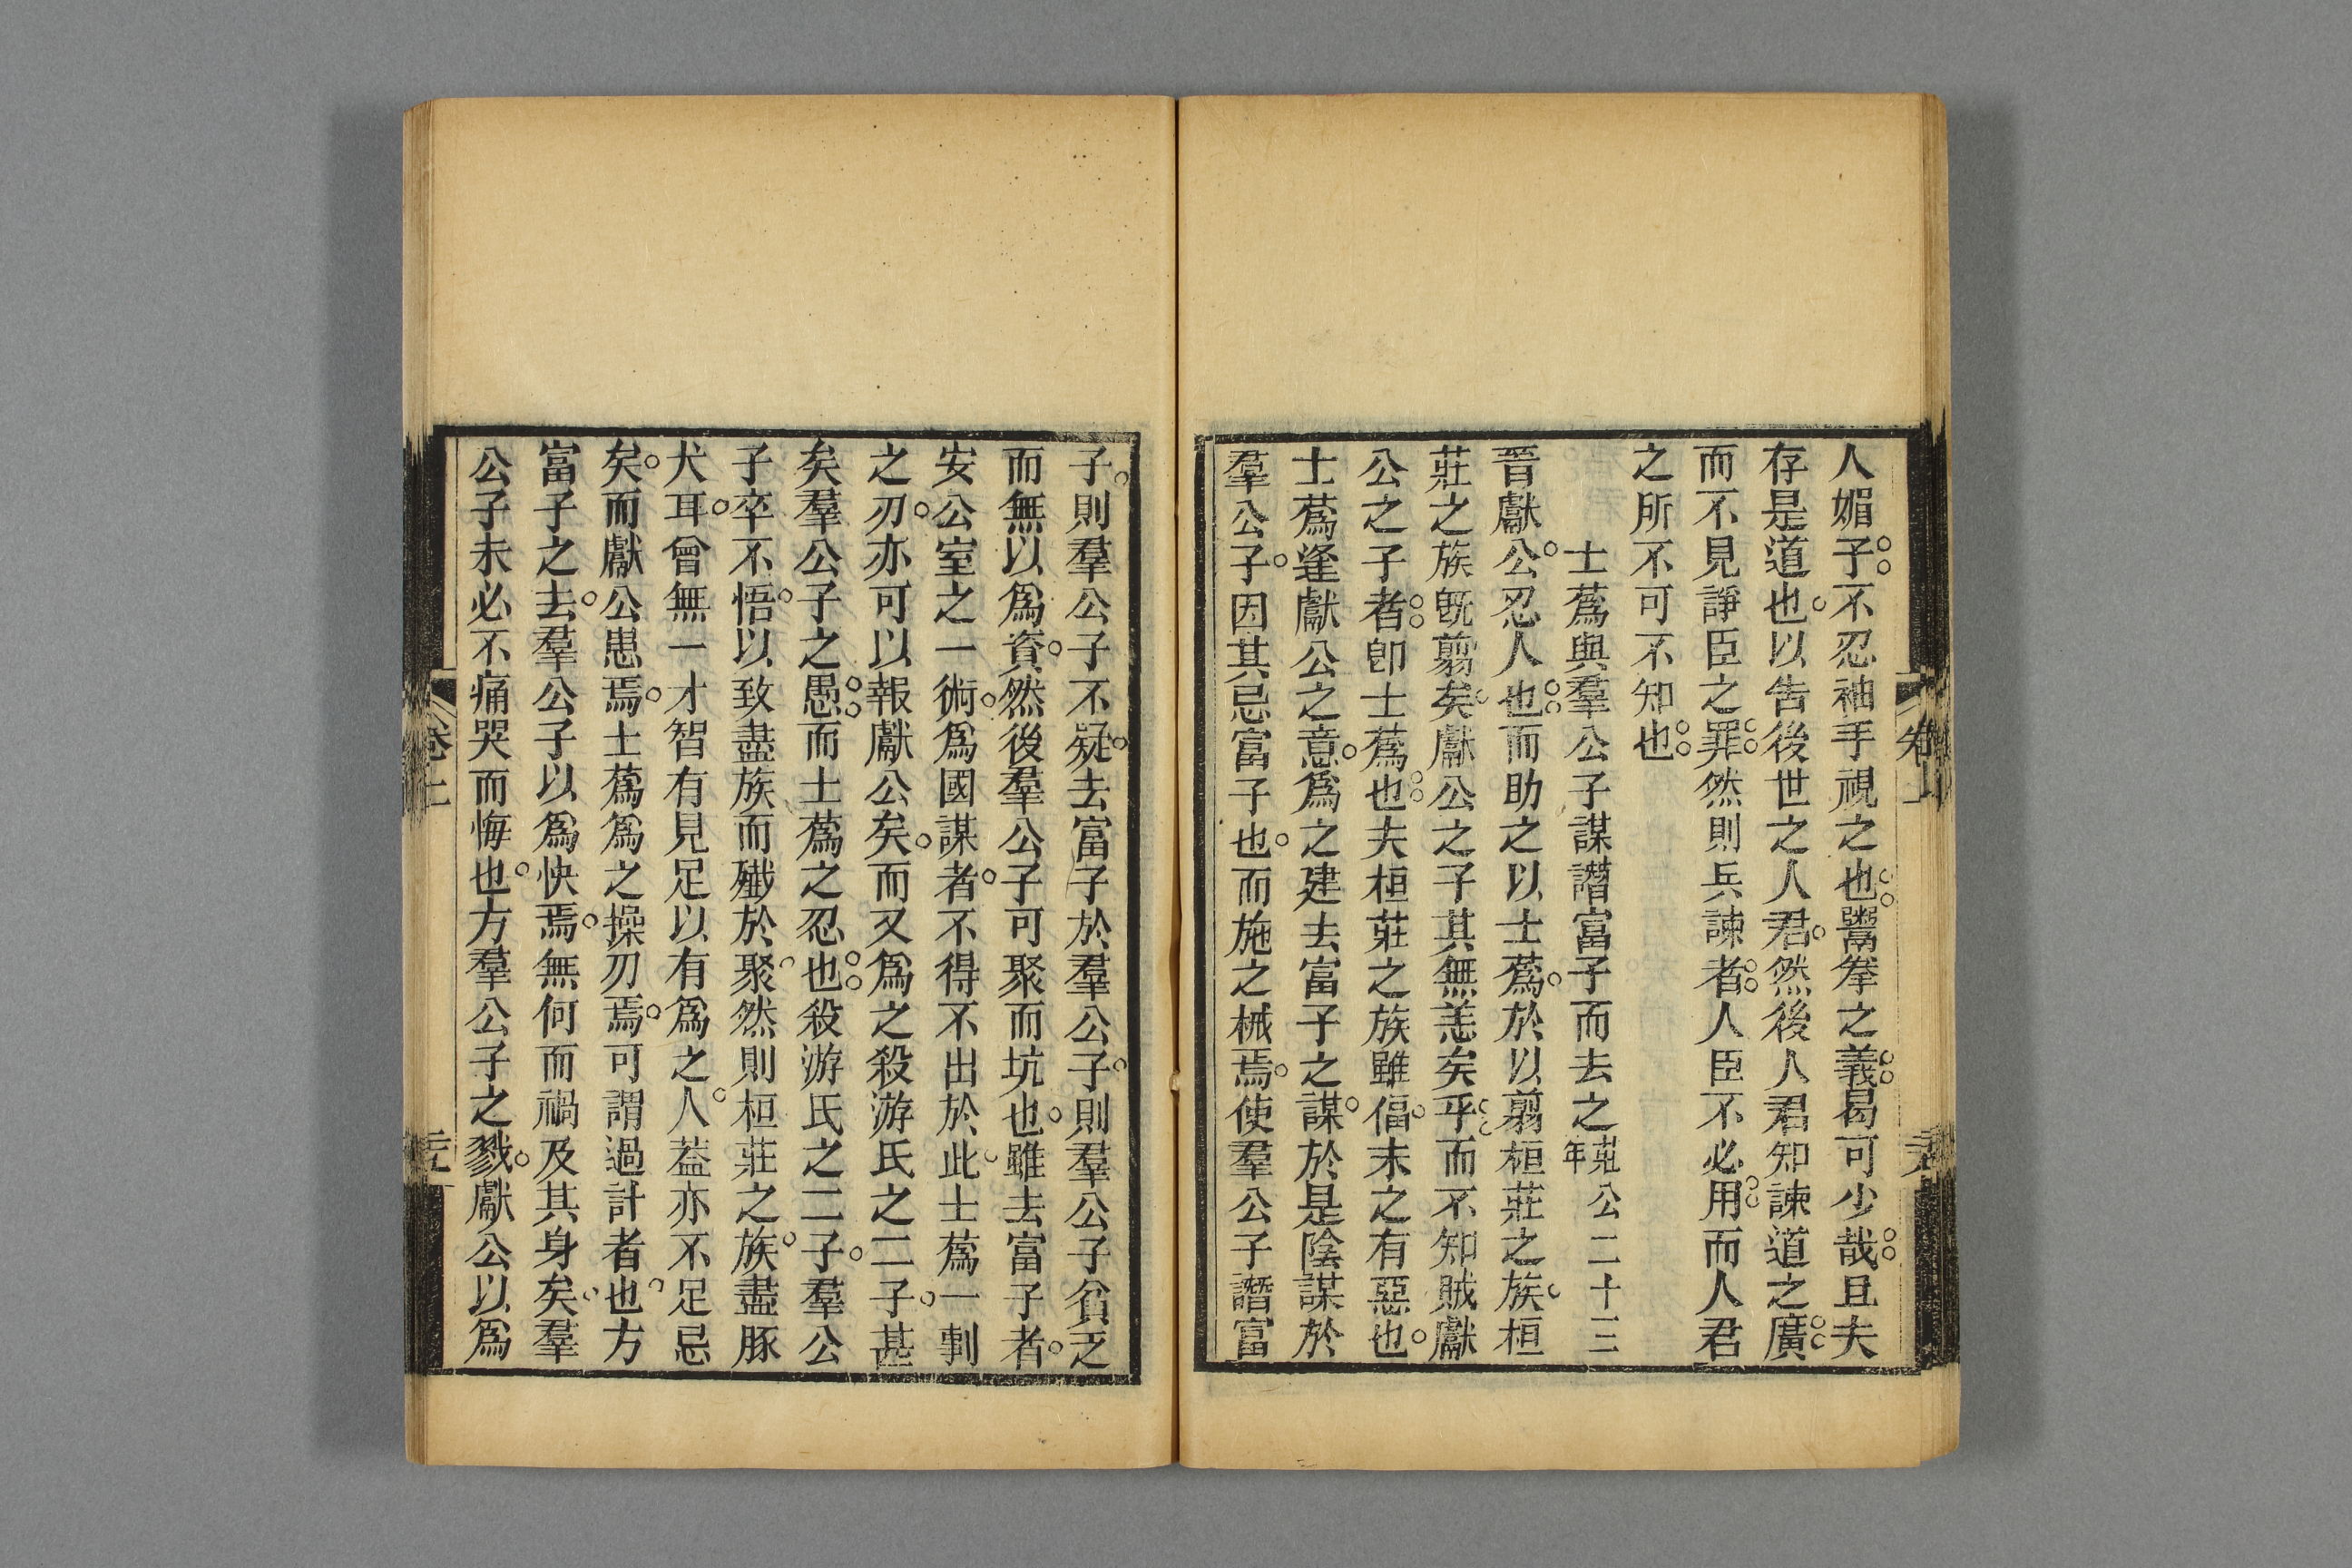 人媚子不忍袖手視之也鬻拳之義曷可少哉且夫
存是道也以告後世之人君然後人君知諫道之廣
而不見諍臣之罪然則兵諫者人臣不必用而人君
之所不可不知也
士蒍與羣公子謀譖富子而去之莊公二十三年
晉獻公忍人也而助之以士蒍於以翦桓莊之族桓
莊之族旣翦矣獻公之子其無恙矣乎而不知賊獻
公之子者卽士蒍也夫桓莊之族雖偪未之有惡也
士蒍逢獻公之意爲之建去富子之謀於是陰謀於
羣公子因其忌富子也而施之械焉使羣公子譖富
卷上
子則羣公子不疑去富子於羣公子則羣公子貧乏
而無以爲資然後羣公子可聚而坑也雖去富子者
安公室之一術爲國謀者不得不出於此士蒍一剚
之刃亦可以報獻公矣而又爲之殺游氏之二子甚
矣羣公子之愚而士蒍之忍也殺游氏之二子羣公
子卒不悟以致盡族而殱於聚然則桓莊之族盡豚
犬耳曾無一才智有見足以有爲之人葢亦不足忌
矣而獻公患焉士蒍爲之操刃焉可謂過計者也方
富子之去羣公子以爲快焉無何而禍及其身矣羣
公子未必不痛哭而悔也方羣公子之戮獻公以爲
卷上